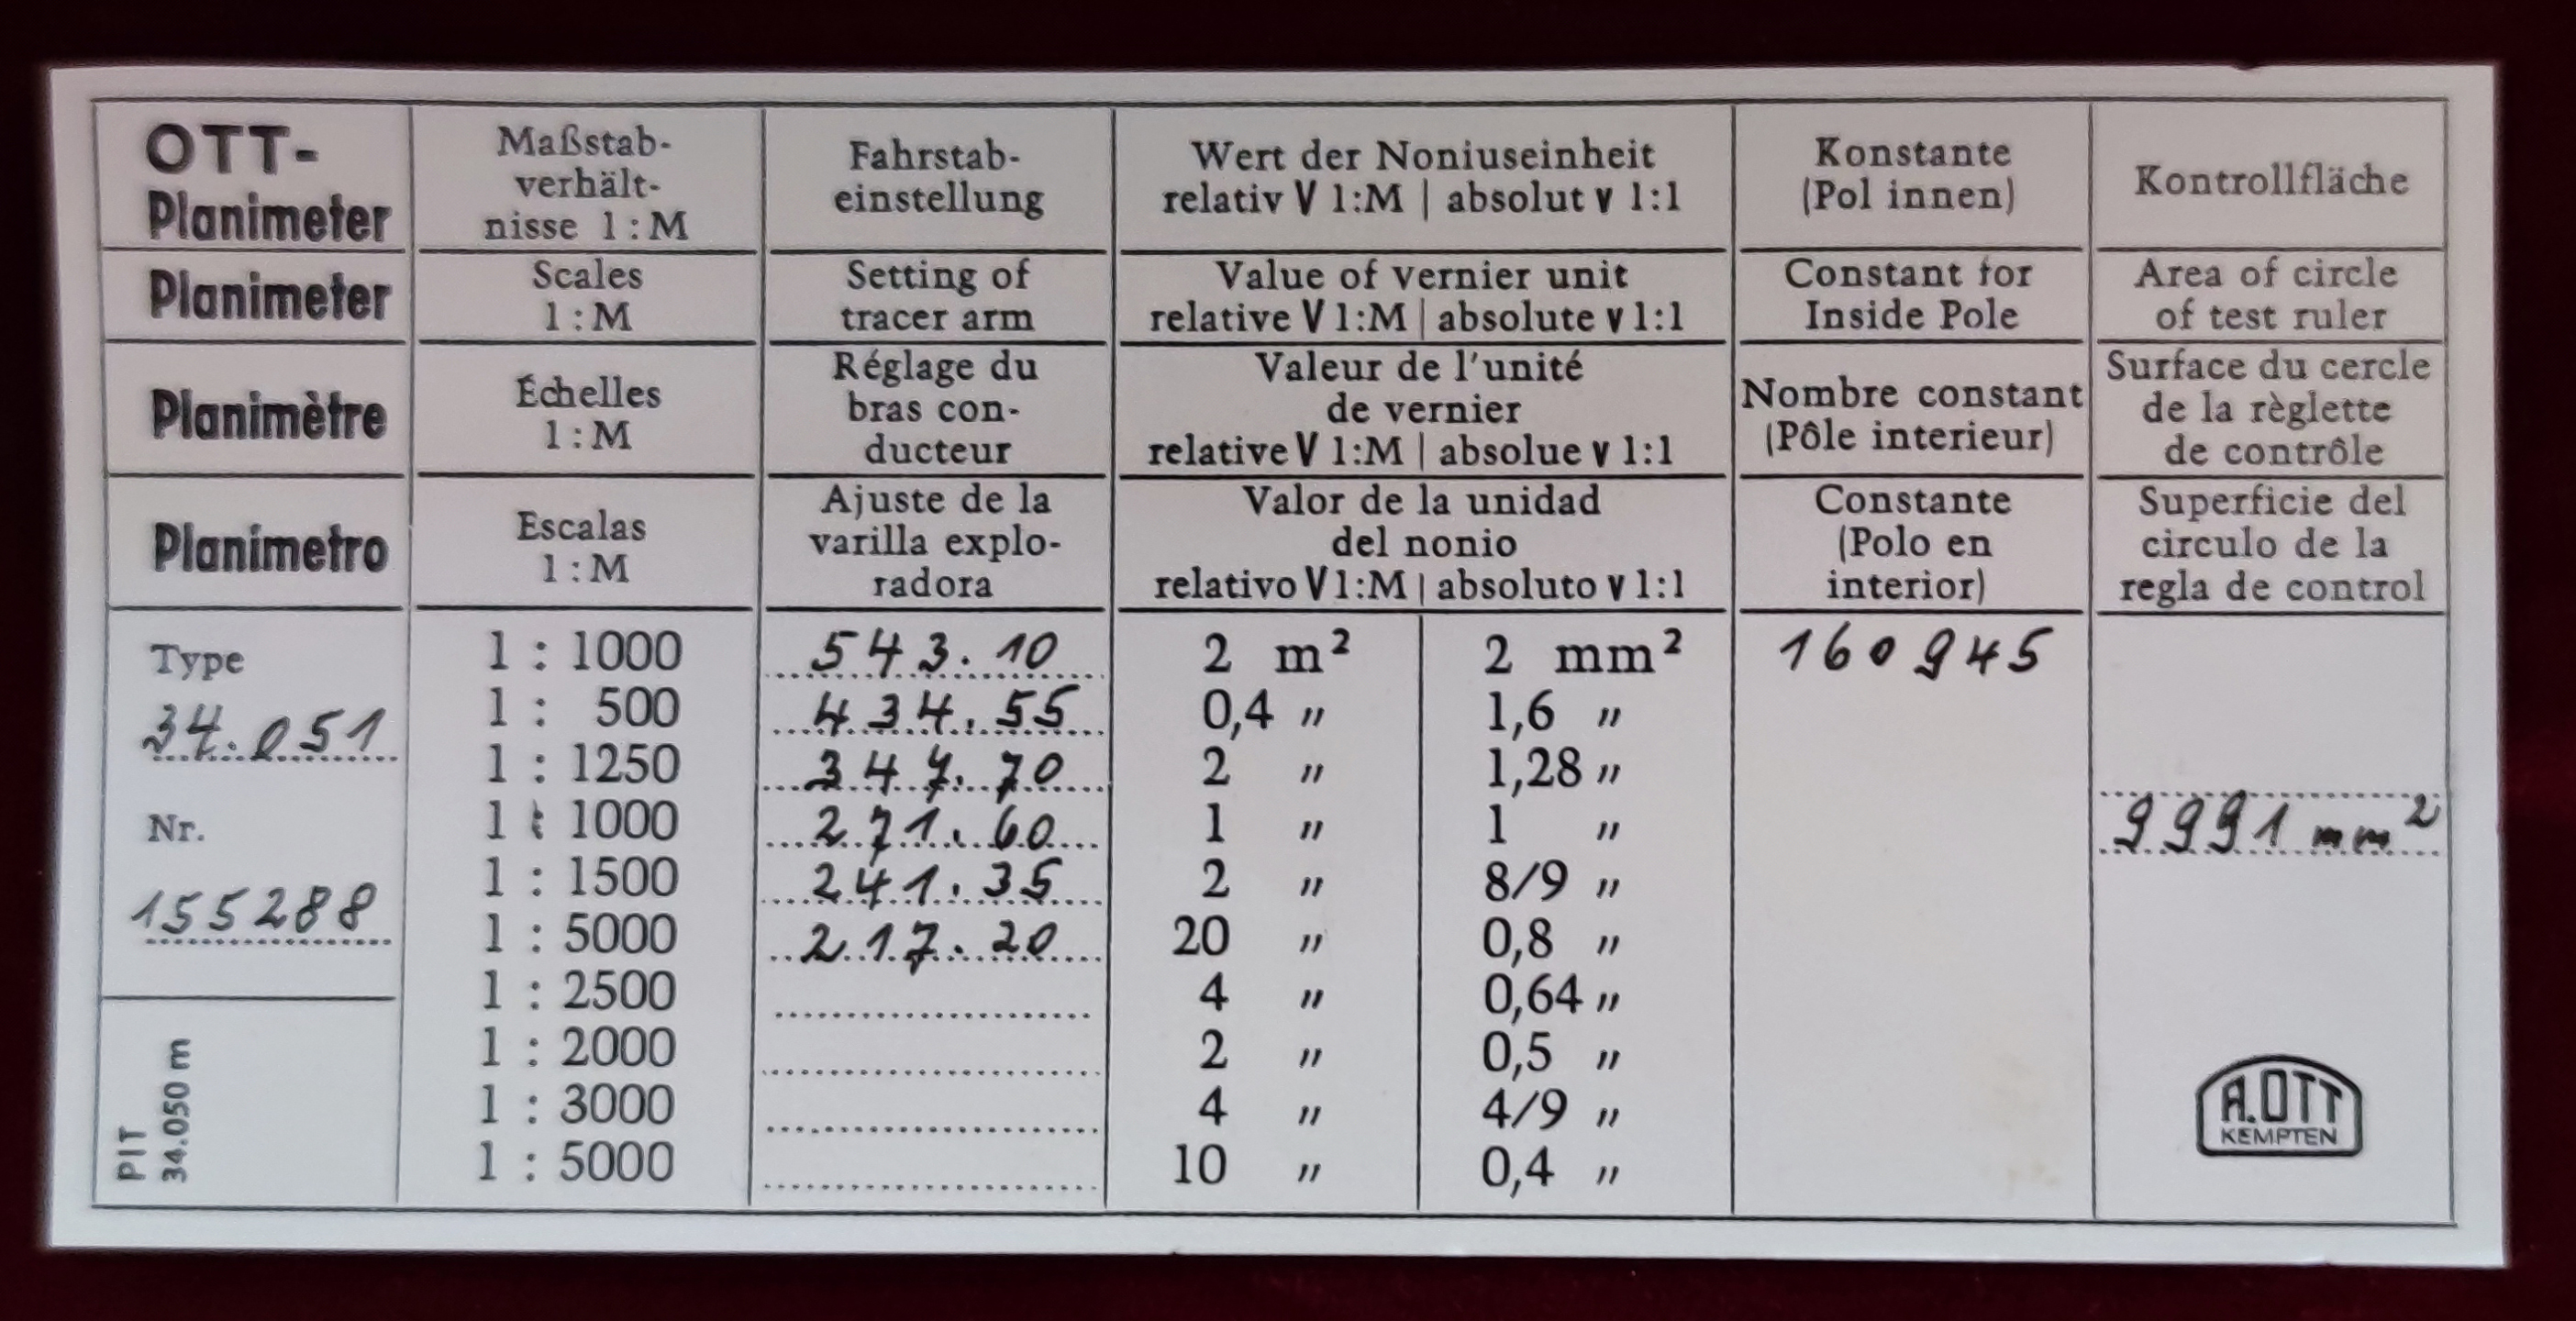 OTT-
Planimeter
Maßstab-
verhält-
nisse 1 : M
Fahrstab-
einstellung
Wert der Noniuseinheit
relativ V 1:M | absolut v 1:1
Konstante
(Pol innen)
Kontrollfläche
Planimeter
Scales
1 : M
Setting of
tracer arm
Value of vernier unit
relative V 1:M | absolute v 1:1
Constant for
Inside Pole
Area of circle
of test ruler
Planimètre
Échelles
1 : M
Réglage du
bras con-
ducteur
Valeur de l'unité
de vernier
relative V 1:M | absolue v 1:1
Nombre constant
(Pôle interieur)
Surface du cercle
de la règlette
de contrôle
Planimetro
Escalas
1 : M
Ajuste de la
varilla explo-
radora
Valor de la unidad
del nonio
relativo V 1:M | absoluto v 1:1
Constante
(Polo en
interior)
Superficie del
circulo de la
regla de control
Type
34.051
Nr.
155288
PIT
34.050 m
1 : 1000 543.10 2 m² 2 mm² 160945
1 : 500 434.55 0,4 " 1,6 "
1 : 1250 347.70 2 " 1,28 "
1 : 1000 271.60 1 " 1 "
1 : 1500 241.35 2 " 8/9 "
1 : 5000 217.20 20 " 0,8 "
1 : 2500 4 " 0,64 "
1 : 2000 2 " 0,5 "
1 : 3000 4 " 4/9 "
1 : 5000 10 " 0,4 "
9991 mm²
A.OTT
KEMPTEN